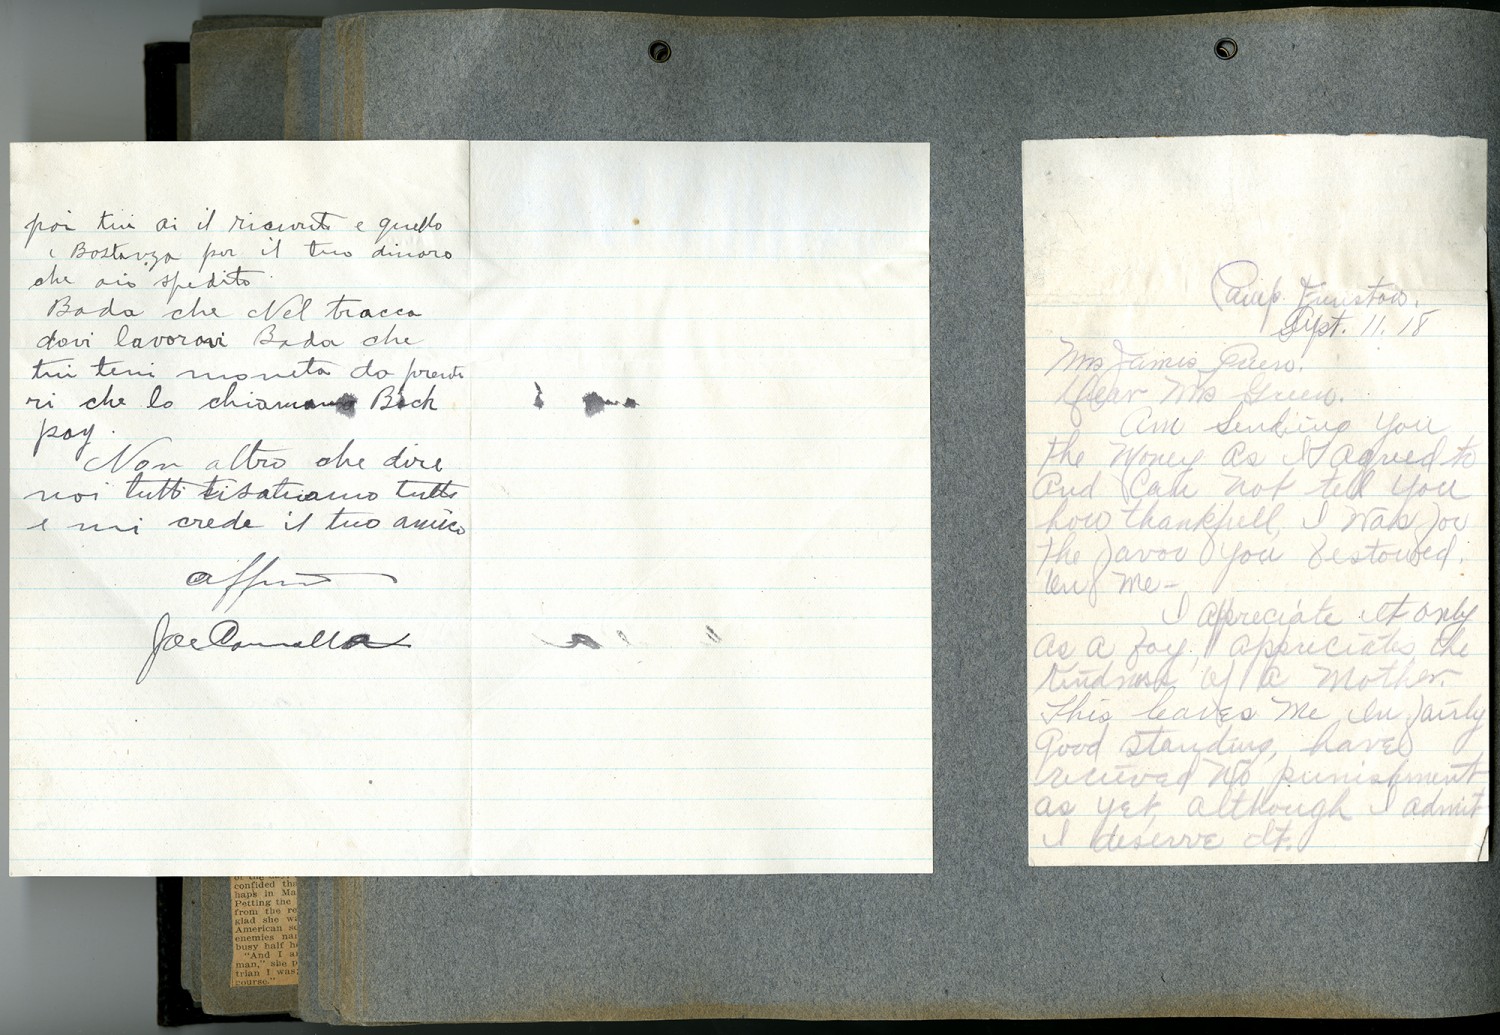 poi tui ai il ricevut e quello
i Bostanza por il tuo dinaro
che aio spedito
Bada che Nel tracca
dovi lavoravi Bada che
tui teni moneta da prende
ri che lo chiamano Back
pay.
Non altro che dire
noi tutti tisatuamo tutti
e mi crede il tuo amico
affmo
Joe
Camp Funston.
Sept. 11. 18
Mrs James Green.
Dear Mrs Green.
Am Sending You
the Money As I Agreed to
And Can not tell You
how thankfull I Was for
the favor You Bestowed.
on Me-
I Appreciate It only
as a boy appreciates the
Kindness of a Mother.
This leaves Me In fairly
Good Standing, have
recieved No punishment
as yet, although I admit
I deserve It.
confided tha
haps in Ma
Petting the
from the re
glad she wa
American so
enemies na
busy half h
"And I a
man," she p
trian I was
course."